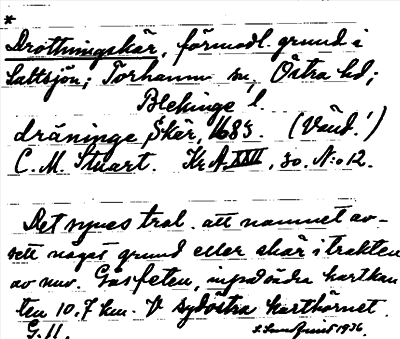 *
Drottningskär, förmodl. grund i
Saltsjön; Torhamn sn, Östra hd;
Blekinge l.
dräninge Skär, 1683. (Vänd!)
C. M. Stuart. Kr. A. XXII, 30. N:o 12.
Det synes trol. att namnet av-
sett något grund eller skär i trakten
av nuv. Gåsfeten, inpå södra kartkan
ten 10,7 km. V sydöstra karthörnet.
G. 11. 1936.